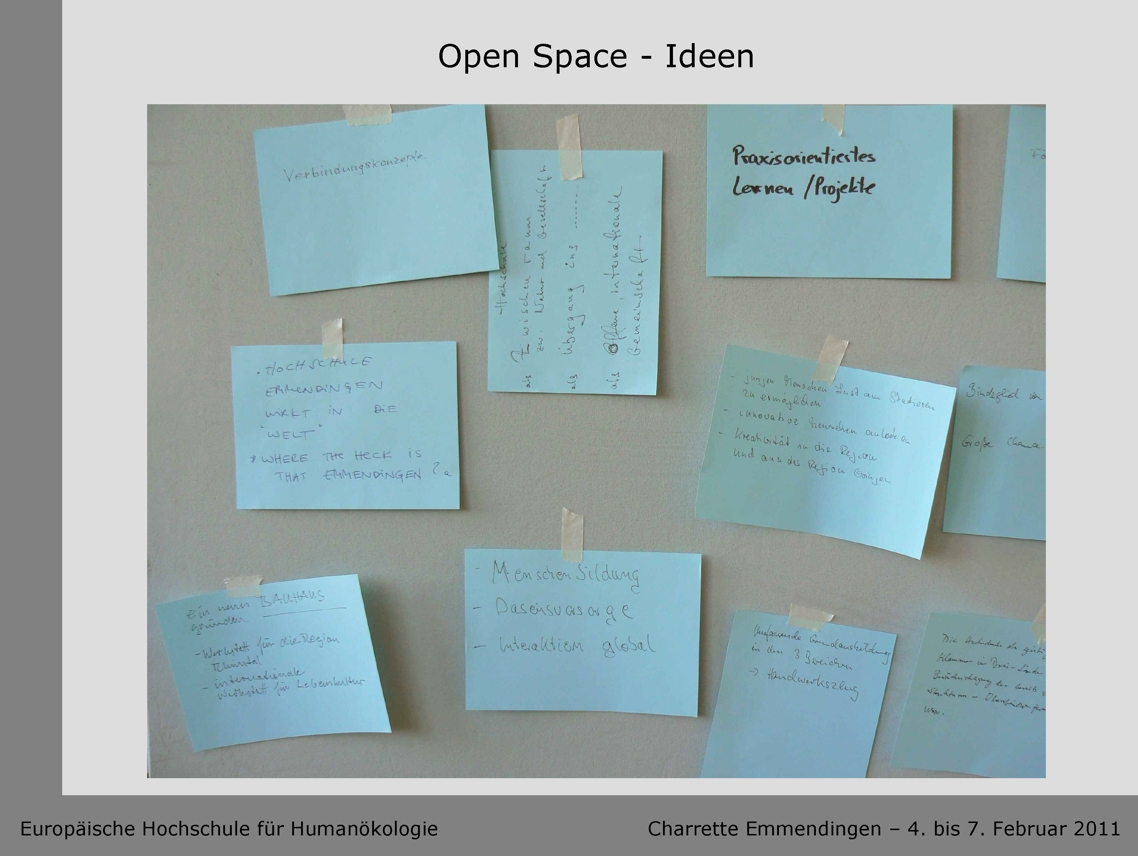 Open Space - Ideen
Verbindungskonzepte
Hochschule
als Zwischenraum
zw. Natur und Gesellschaft
als Übergang ins ........
als Offene, internationale
Gemeinschaft
Praxisorientiertes
Lernen / Projekte
Fo
. HOCHSCHULE
EMMENDINGEN
WIRKT IN DIE
"WELT"
* WHERE THE HECK IS
THAT EMMENDINGEN ?
- jungen Menschen Lust am Studieren
zu ermöglichen
- innovative Menschen anlocken
- Kreativität in die Region
und aus der Region bringen
Bindeglied
Große
Ein neues BAUHAUS
gründen
- Werkstatt für die Region
- internationale
Werkstatt für Lebenskultur
- Menschenbildung
- Daseinsvorsorge
- Interaktion global
Grundausbildung
in den 3 Bereichen
-> Handwerkszeug
Die
Europäische Hochschule für Humanökologie
Charrette Emmendingen – 4. bis 7. Februar 2011